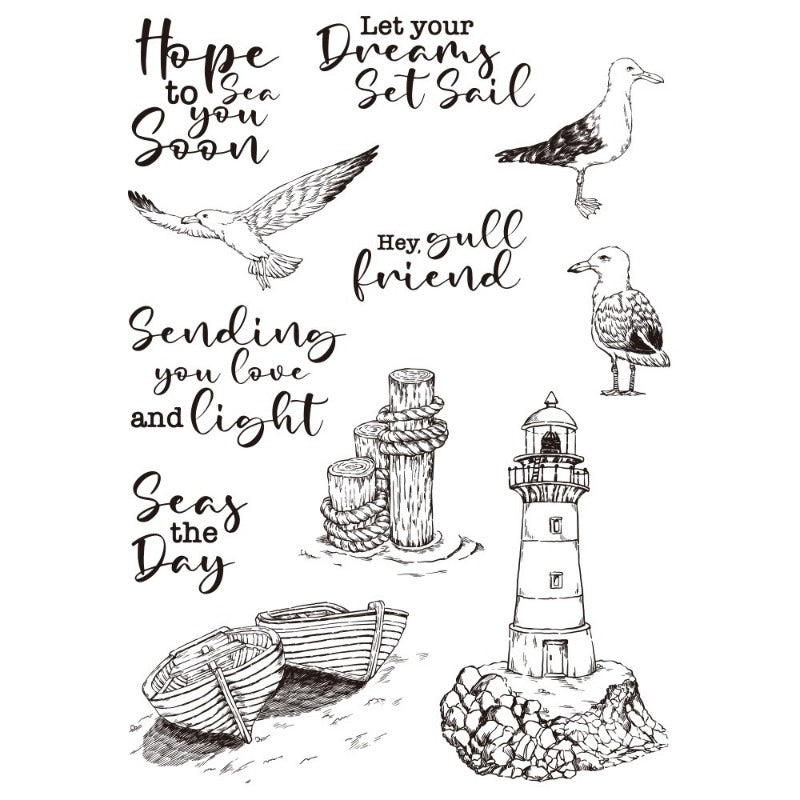 Hope
to Sea
you
Soon
Let your
Dreams
Set Sail
Hey, gull
friend
Sending
you love
and light
Seas
the
Day